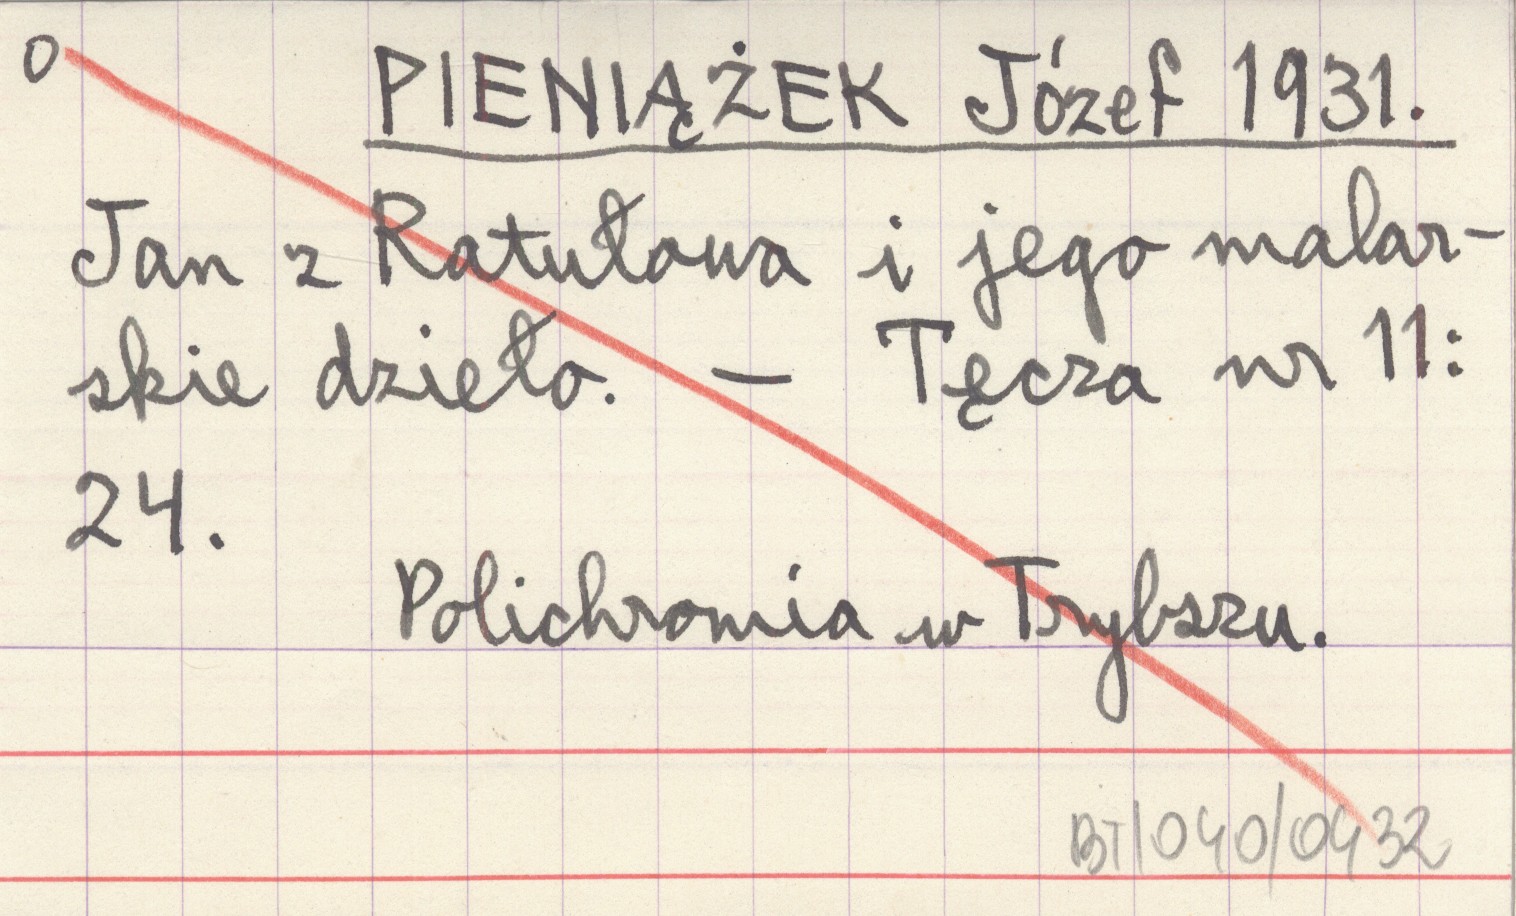 O PIENIĄŻEK Józef 1931.
Jan z Ratułowa i jego malar-
skie dzieło. — Tęcza nr 11:
24.
Polichromia w Trybszu.
BT/040/0432